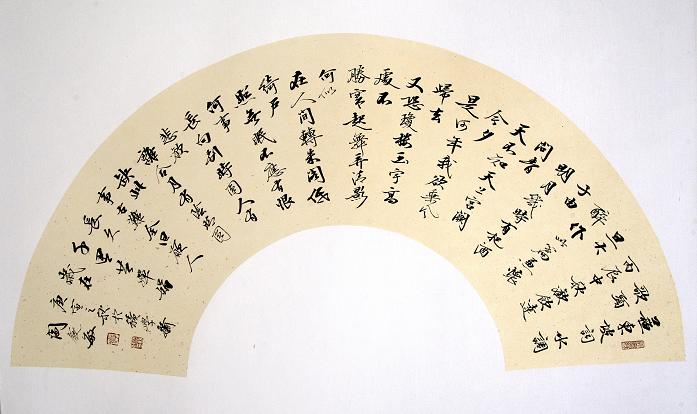 蘇東坡詞水調
歌頭
丙辰中秋歡飲達
旦大醉
作此篇兼懷
子由
明月幾時有把酒
問青
天不知天上宮闕
今夕
是何年我欲乘風
歸去
又恐瓊樓玉宇高
處不
勝寒起舞弄清影
何似
在人間轉朱閣低
綺戶
照無眠不應有恨
何事
長向別時圓人有
悲歡
離合月有陰晴圓
缺此
事古難全但願人
長久
千里共嬋娟
歲在
庚寅之秋於
周
敏